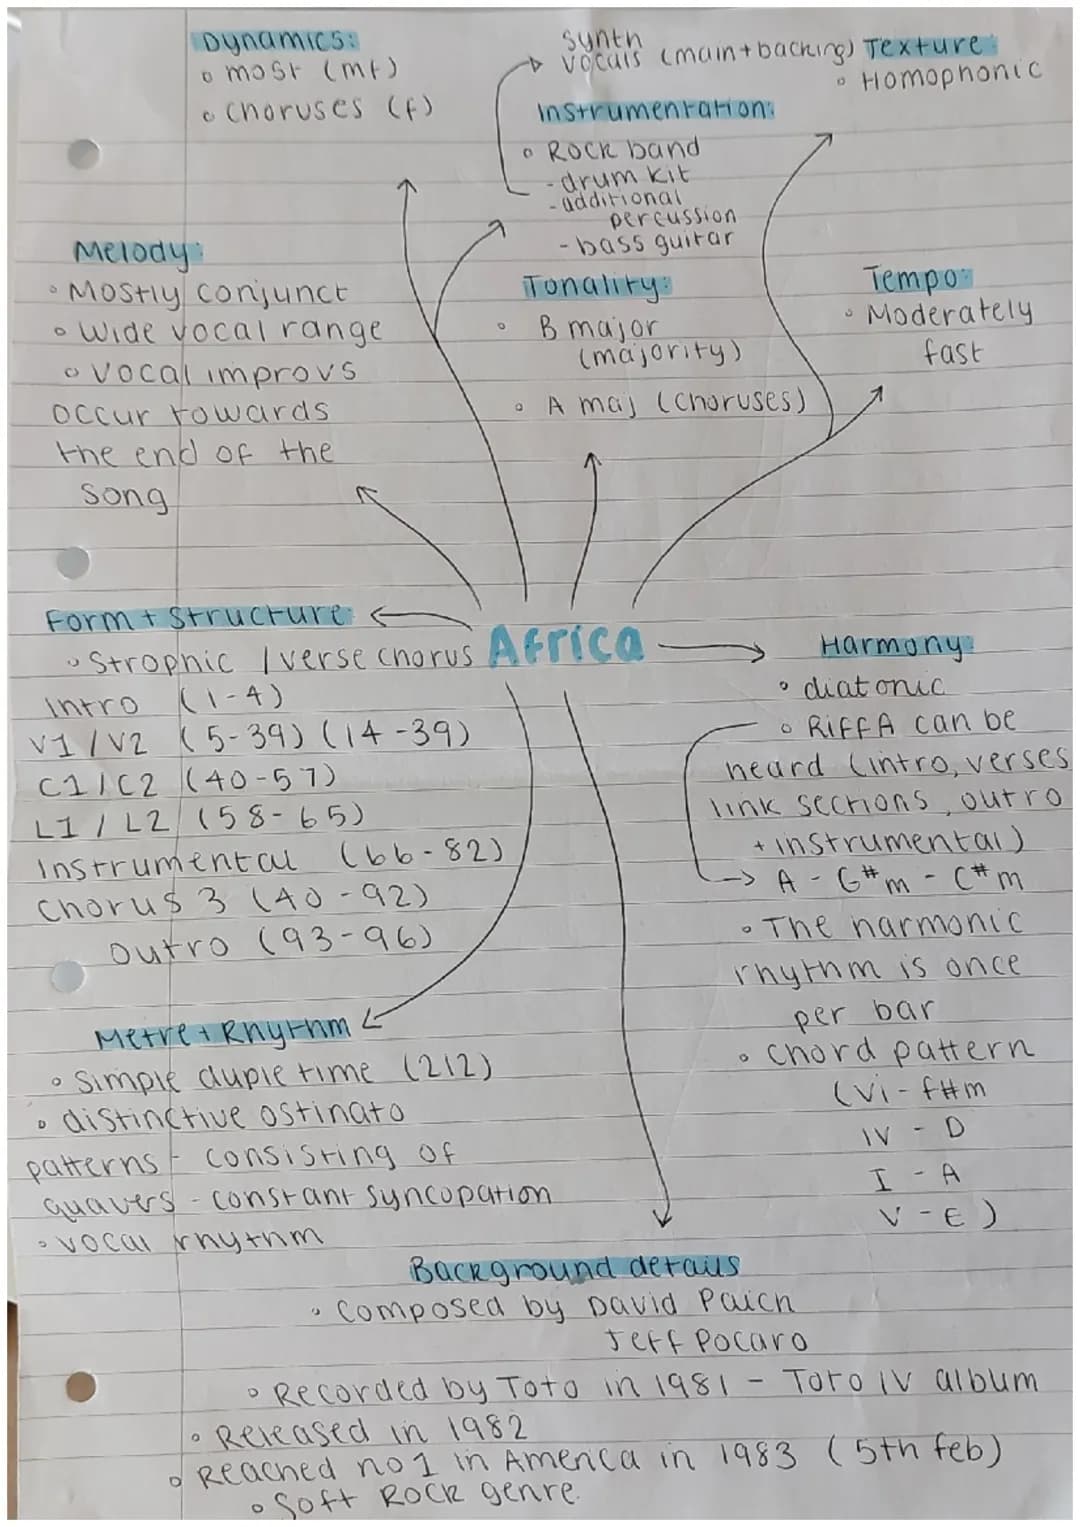 Dynamics:
• most (mf)
• choruses (f)
synth
vocals (main + backing)
Instrumentation:
• Rock band
- drum kit
- additional
percussion
- bass guitar
Texture:
• Homophonic
Melody:
• Mostly conjunct
• Wide vocal range
• Vocal improvs
occur towards
the end of the
song
Tonality:
• B major
(majority)
• A maj (choruses)
Tempo:
• Moderately
fast
Africa
Form + Structure
• Strophic / verse chorus
Intro (1-4)
V1 / V2 (5-39) (14-39)
C1 / C2 (40-57)
L1 / L2 (58-65)
Instrumental (66-82)
Chorus 3 (40-92)
Outro (93-96)
Harmony
• diatonic
• Riff A can be
heard (intro, verses
link sections, outro
+ instrumental)
A - G#m - C#m
• The harmonic
rhythm is once
per bar
• chord pattern
(Vi - f#m
IV - D
I - A
V - E)
Metre + Rhythm
• Simple duple time (2/2)
• distinctive ostinato
patterns - consisting of
quavers - constant syncopation
• vocal rhythm
Background details
• Composed by David Paich
Jeff Pocaro
• Recorded by Toto in 1981 - Toto IV album
• Released in 1982
• Reached no 1 in America in 1983 (5th feb)
• Soft Rock genre.